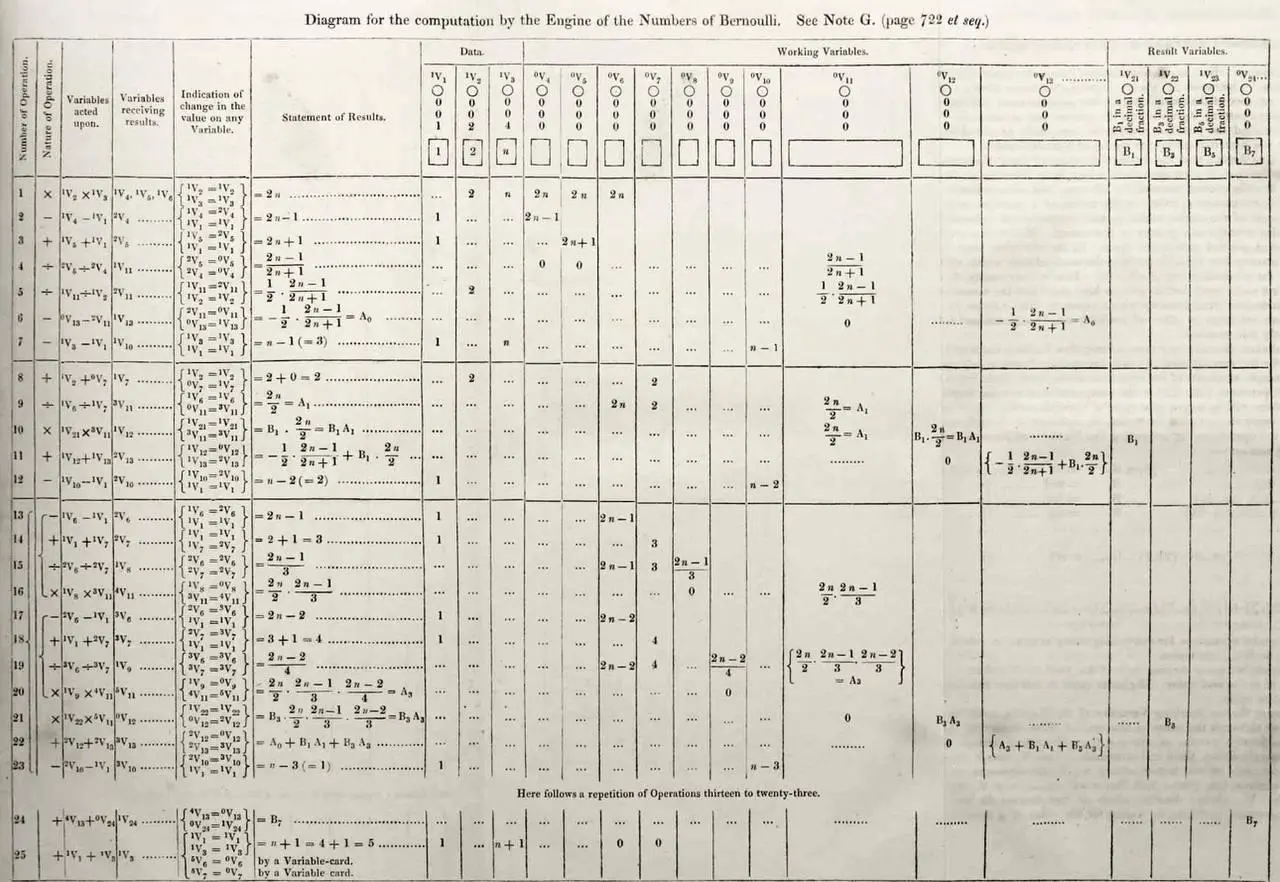 Diagram for the computation by the Engine of the Numbers of Bernoulli. See Note G. (page 722 et seq.)
Data. Working Variables. Result Variables.
Number of Operation. Nature of Operation. Variables acted upon. Variables receiving results. Indication of change in the value on any Variable. Statement of Results.
¹V₁ ¹V₂ ¹V₃ ⁰V₄ ⁰V₅ ⁰V₆ ⁰V₇ ⁰V₈ ⁰V₉ ⁰V₁₀ ⁰V₁₁ ⁰V₁₂ ⁰V₁₃ ............ ¹V₂₁ ¹V₂₂ ¹V₂₃ ⁰V₂₄...
○ ○ ○ ○ ○ ○ ○ ○ ○ ○ ○ ○ ○ ○ ○ ○ ○
0 0 0 0 0 0 0 0 0 0 0 0 0 B₁ in a decimal fraction. B₃ in a decimal fraction. B₅ in a decimal fraction. 0
0 0 0 0 0 0 0 0 0 0 0 0 0 0
1 2 4 0 0 0 0 0 0 0 0 0 0 0
1 2 n B₁ B₃ B₅ B₇
1 × ¹V₂ × ¹V₃ ¹V₄, ¹V₅, ¹V₆ {¹V₂ = ¹V₂ ¹V₃ = ¹V₃} = 2n ... 2 n 2n 2n 2n
2 − ¹V₄ − ¹V₁ ²V₄ ......... {¹V₄ = ²V₄ ¹V₁ = ¹V₁} = 2n − 1 1 ... ... 2n − 1
3 + ¹V₅ + ¹V₁ ²V₅ ......... {¹V₅ = ²V₅ ¹V₁ = ¹V₁} = 2n + 1 1 ... ... ... 2n + 1
4 ÷ ²V₅ ÷ ²V₄ ¹V₁₁ ......... {²V₅ = ⁰V₅ ²V₄ = ⁰V₄} = (2n − 1)/(2n + 1) ... ... ... 0 0 ... ... ... ... ... (2n − 1)/(2n + 1)
5 ÷ ¹V₁₁ ÷ ¹V₂ ²V₁₁ ......... {¹V₁₁ = ²V₁₁ ¹V₂ = ¹V₂} = 1/2 · (2n − 1)/(2n + 1) ... 2 ... ... ... ... ... ... ... ... 1/2 · (2n − 1)/(2n + 1)
6 − ⁰V₁₃ − ²V₁₁ ¹V₁₃ ......... {²V₁₁ = ⁰V₁₁ ⁰V₁₃ = ¹V₁₃} = − 1/2 · (2n − 1)/(2n + 1) = A₀ ... ... ... ... ... ... ... ... ... ... 0 ......... − 1/2 · (2n − 1)/(2n + 1) = A₀
7 − ¹V₃ − ¹V₁ ¹V₁₀ ......... {¹V₃ = ¹V₃ ¹V₁ = ¹V₁} = n − 1 (= 3) 1 ... n ... ... ... ... ... ... n − 1
8 + ¹V₂ + ⁰V₇ ¹V₇ ......... {¹V₂ = ¹V₂ ⁰V₇ = ¹V₇} = 2 + 0 = 2 ... 2 ... ... ... ... 2
9 ÷ ¹V₆ ÷ ¹V₇ ³V₁₁ ......... {¹V₆ = ¹V₆ ⁰V₁₁ = ³V₁₁} = 2n/2 = A₁ ... ... ... ... ... 2n 2 ... ... ... 2n/2 = A₁
10 × ¹V₂₁ × ³V₁₁ ¹V₁₂ ......... {¹V₂₁ = ¹V₂₁ ³V₁₁ = ³V₁₁} = B₁ · 2n/2 = B₁A₁ ... ... ... ... ... ... ... ... ... ... 2n/2 = A₁ B₁ · 2n/2 = B₁A₁ ......... B₁
11 + ¹V₁₂ + ¹V₁₃ ²V₁₃ ......... {¹V₁₂ = ⁰V₁₂ ¹V₁₃ = ²V₁₃} = − 1/2 · (2n − 1)/(2n + 1) + B₁ · 2n/2 ... ... ... ... ... ... ... ... ... ... ......... 0 {− 1/2 · (2n − 1)/(2n + 1) + B₁ · 2n/2}
12 − ¹V₁₀ − ¹V₁ ²V₁₀ ......... {¹V₁₀ = ²V₁₀ ¹V₁ = ¹V₁} = n − 2 (= 2) 1 ... ... ... ... ... ... ... ... n − 2
13 − ¹V₆ − ¹V₁ ²V₆ ......... {¹V₆ = ²V₆ ¹V₁ = ¹V₁} = 2n − 1 1 ... ... ... ... 2n − 1
14 + ¹V₁ + ¹V₇ ²V₇ ......... {¹V₁ = ¹V₁ ¹V₇ = ²V₇} = 2 + 1 = 3 1 ... ... ... ... ... 3
15 ÷ ²V₆ ÷ ²V₇ ¹V₈ ......... {²V₆ = ²V₆ ²V₇ = ²V₇} = (2n − 1)/3 ... ... ... ... ... 2n − 1 3 (2n − 1)/3
16 × ¹V₈ × ³V₁₁ ⁴V₁₁ ......... {¹V₈ = ⁰V₈ ³V₁₁ = ⁴V₁₁} = 2n/2 · (2n − 1)/3 ... ... ... ... ... ... ... 0 ... ... 2n/2 · (2n − 1)/3
17 − ²V₆ − ¹V₁ ³V₆ ......... {²V₆ = ³V₆ ¹V₁ = ¹V₁} = 2n − 2 1 ... ... ... ... 2n − 2
18 + ¹V₁ + ²V₇ ³V₇ ......... {²V₇ = ³V₇ ¹V₁ = ¹V₁} = 3 + 1 = 4 1 ... ... ... ... ... 4
19 ÷ ³V₆ ÷ ³V₇ ¹V₉ ......... {³V₆ = ³V₆ ³V₇ = ³V₇} = (2n − 2)/4 ... ... ... ... ... 2n − 2 4 ... (2n − 2)/4 ... {2n/2 · (2n − 1)/3 · (2n − 2)/3} = A₃
20 × ¹V₉ × ⁴V₁₁ ⁵V₁₁ ......... {¹V₉ = ⁰V₉ ⁴V₁₁ = ⁵V₁₁} = 2n/2 · (2n − 1)/3 · (2n − 2)/4 = A₃ ... ... ... ... ... ... ... ... 0
21 × ¹V₂₂ × ⁵V₁₁ ⁰V₁₂ ......... {¹V₂₂ = ¹V₂₂ ⁰V₁₂ = ²V₁₂} = B₃ · 2n/2 · (2n − 1)/3 · (2n − 2)/3 = B₃A₃ ... ... ... ... ... ... ... ... ... ... 0 B₃A₃ ......... ...... B₃
22 + ²V₁₂ + ²V₁₃ ³V₁₃ ......... {²V₁₂ = ⁰V₁₂ ²V₁₃ = ³V₁₃} = A₀ + B₁A₁ + B₃A₃ ... ... ... ... ... ... ... ... ... ... ......... 0 {A₃ + B₁A₁ + B₃A₃}
23 − ²V₁₀ − ¹V₁ ³V₁₀ ......... {²V₁₀ = ³V₁₀ ¹V₁ = ¹V₁} = n − 3 (= 1) 1 ... ... ... ... ... ... ... ... n − 3
Here follows a repetition of Operations thirteen to twenty-three.
24 + ⁴V₁₃ + ⁰V₂₄ ¹V₂₄ ......... {⁴V₁₃ = ⁰V₁₃ ⁰V₂₄ = ¹V₂₄} = B₇ ... ... ... ... ... ... ... ... ... ... ......... ......... ......... ...... ...... ...... B₇
25 + ¹V₁ + ¹V₃ ¹V₃ ......... {¹V₁ = ¹V₁ ¹V₃ = ¹V₃ = n + 1 = 4 + 1 = 5 1 ... n + 1 ... ... 0 0
⁵V₆ = ⁰V₆ by a Variable-card.
⁵V₇ = ⁰V₇} by a Variable card.